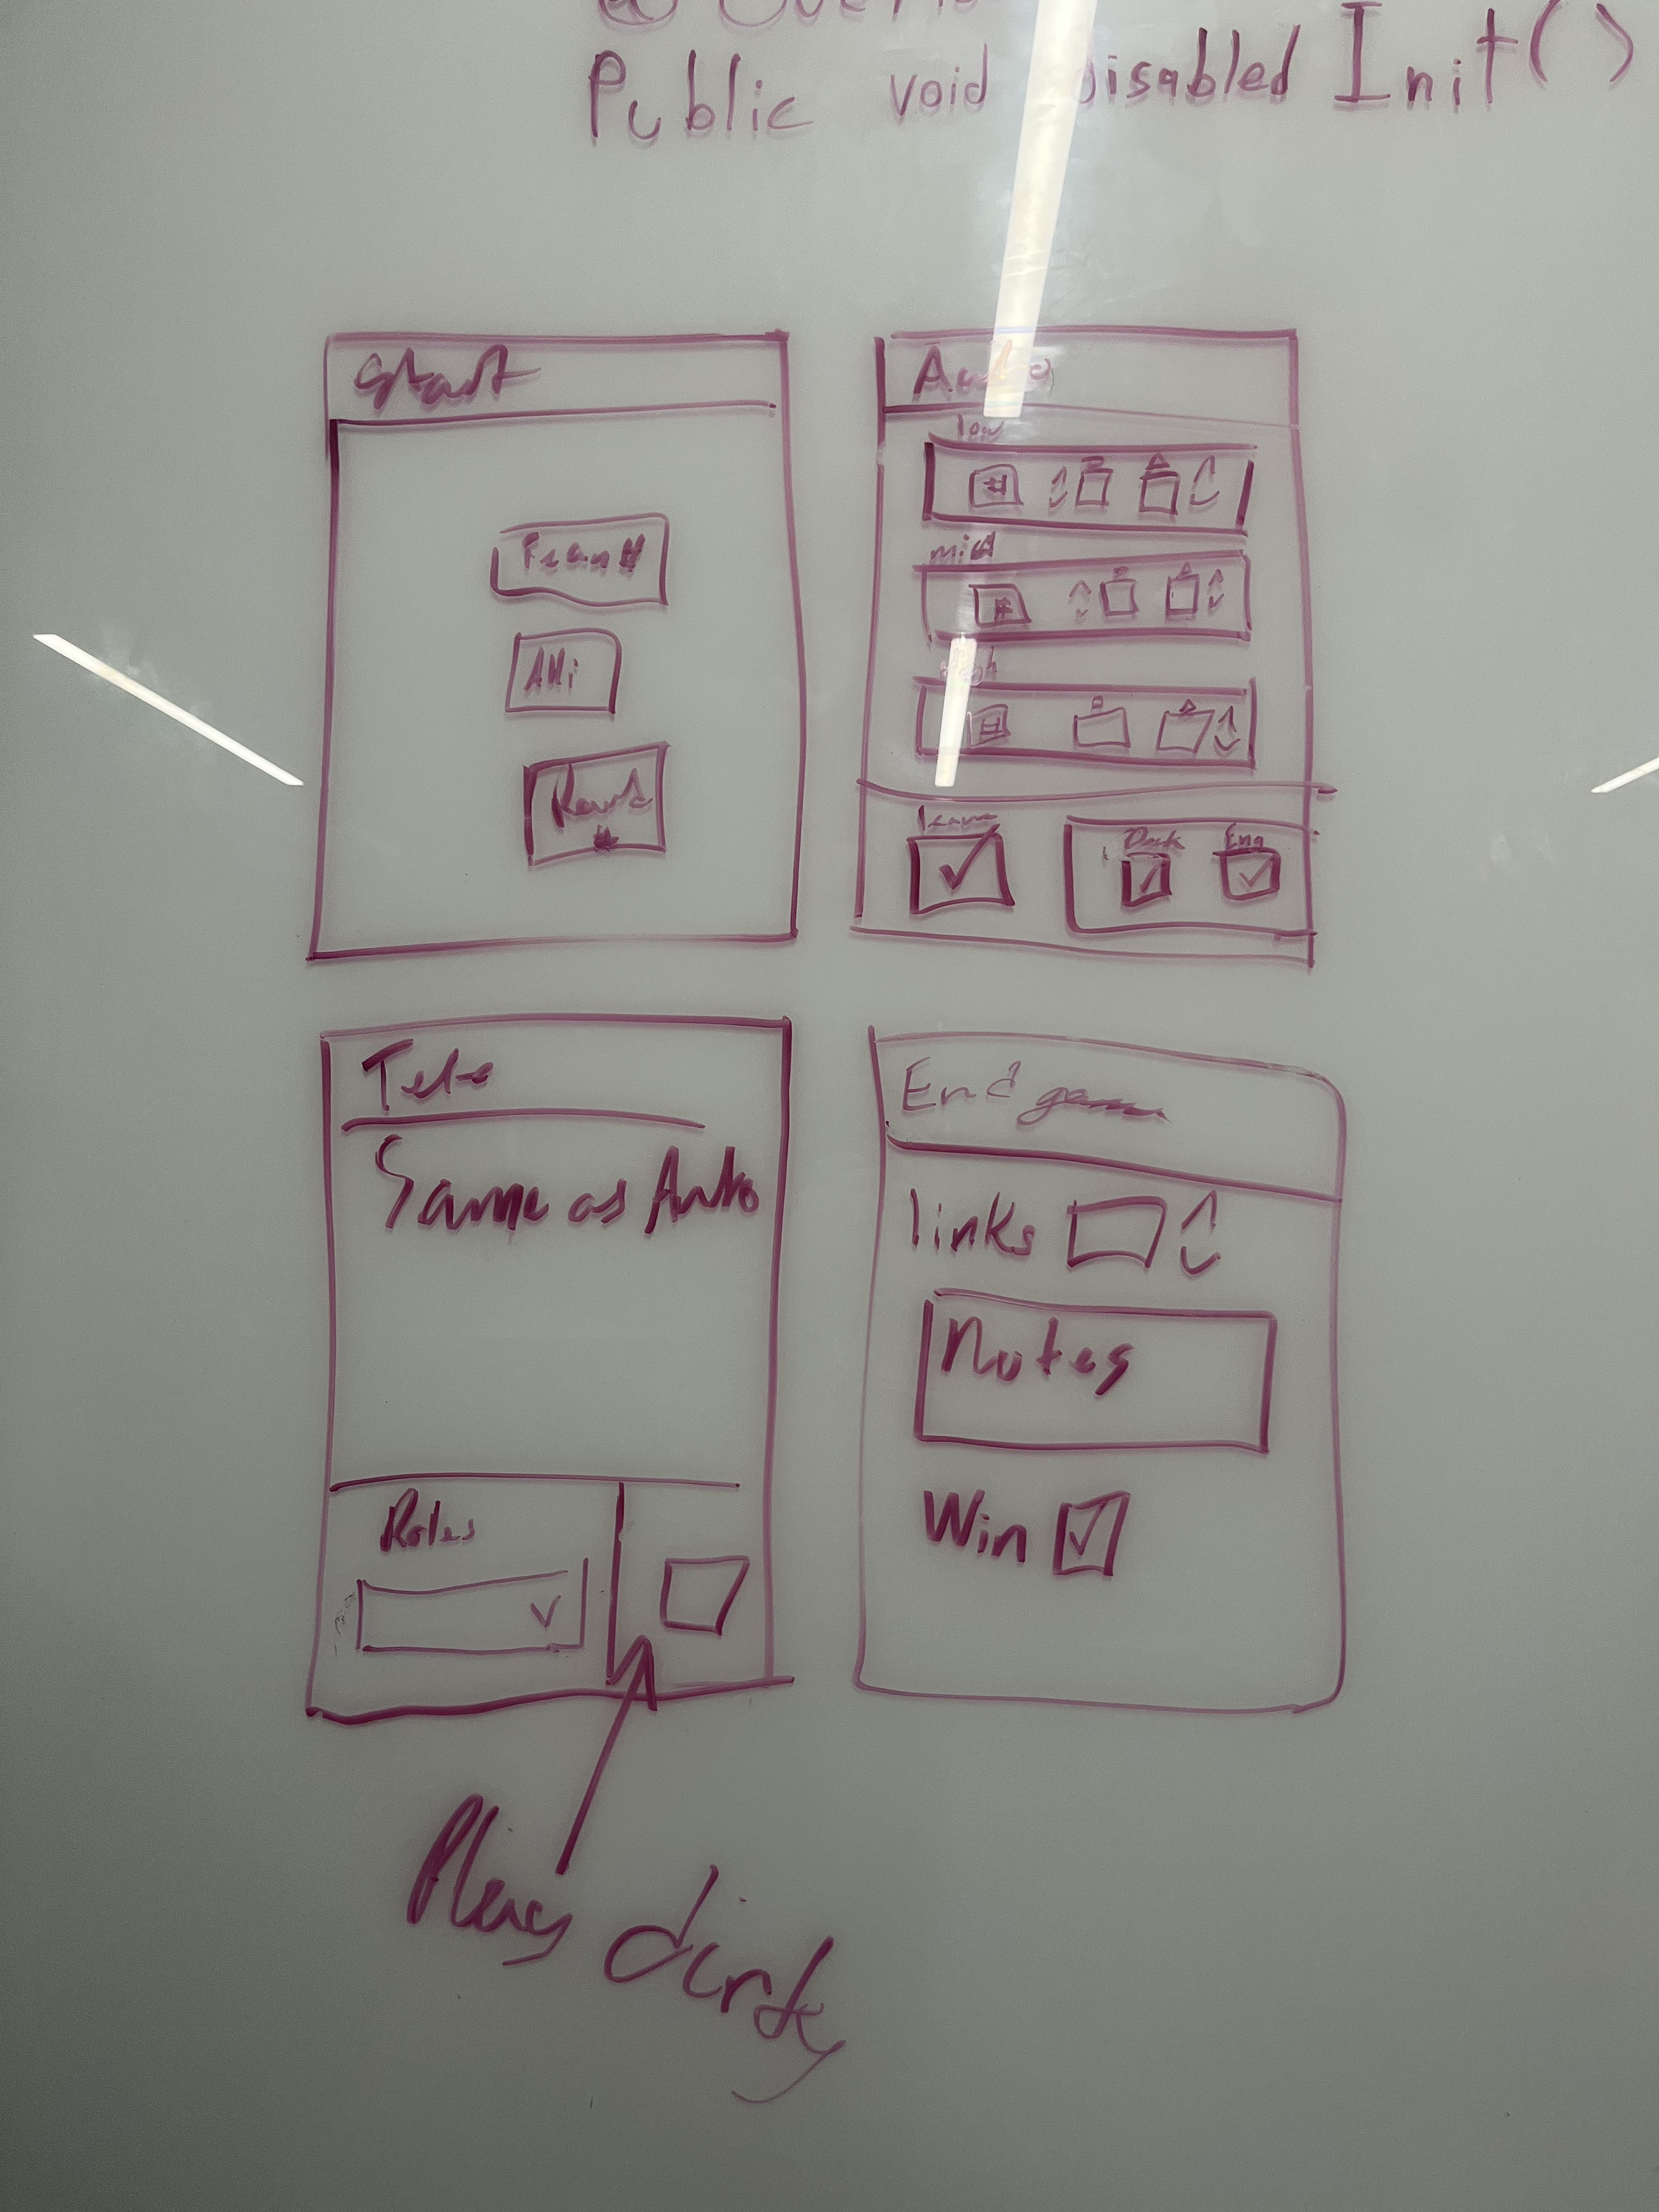 Public void disabled Init()
Start
Team #
Alli
#
Auto
low
#
mid
#
high
#
leave
Dock
Eng
Tele
Same as Auto
Roles
End game
links
Notes
Win
Plays dirty